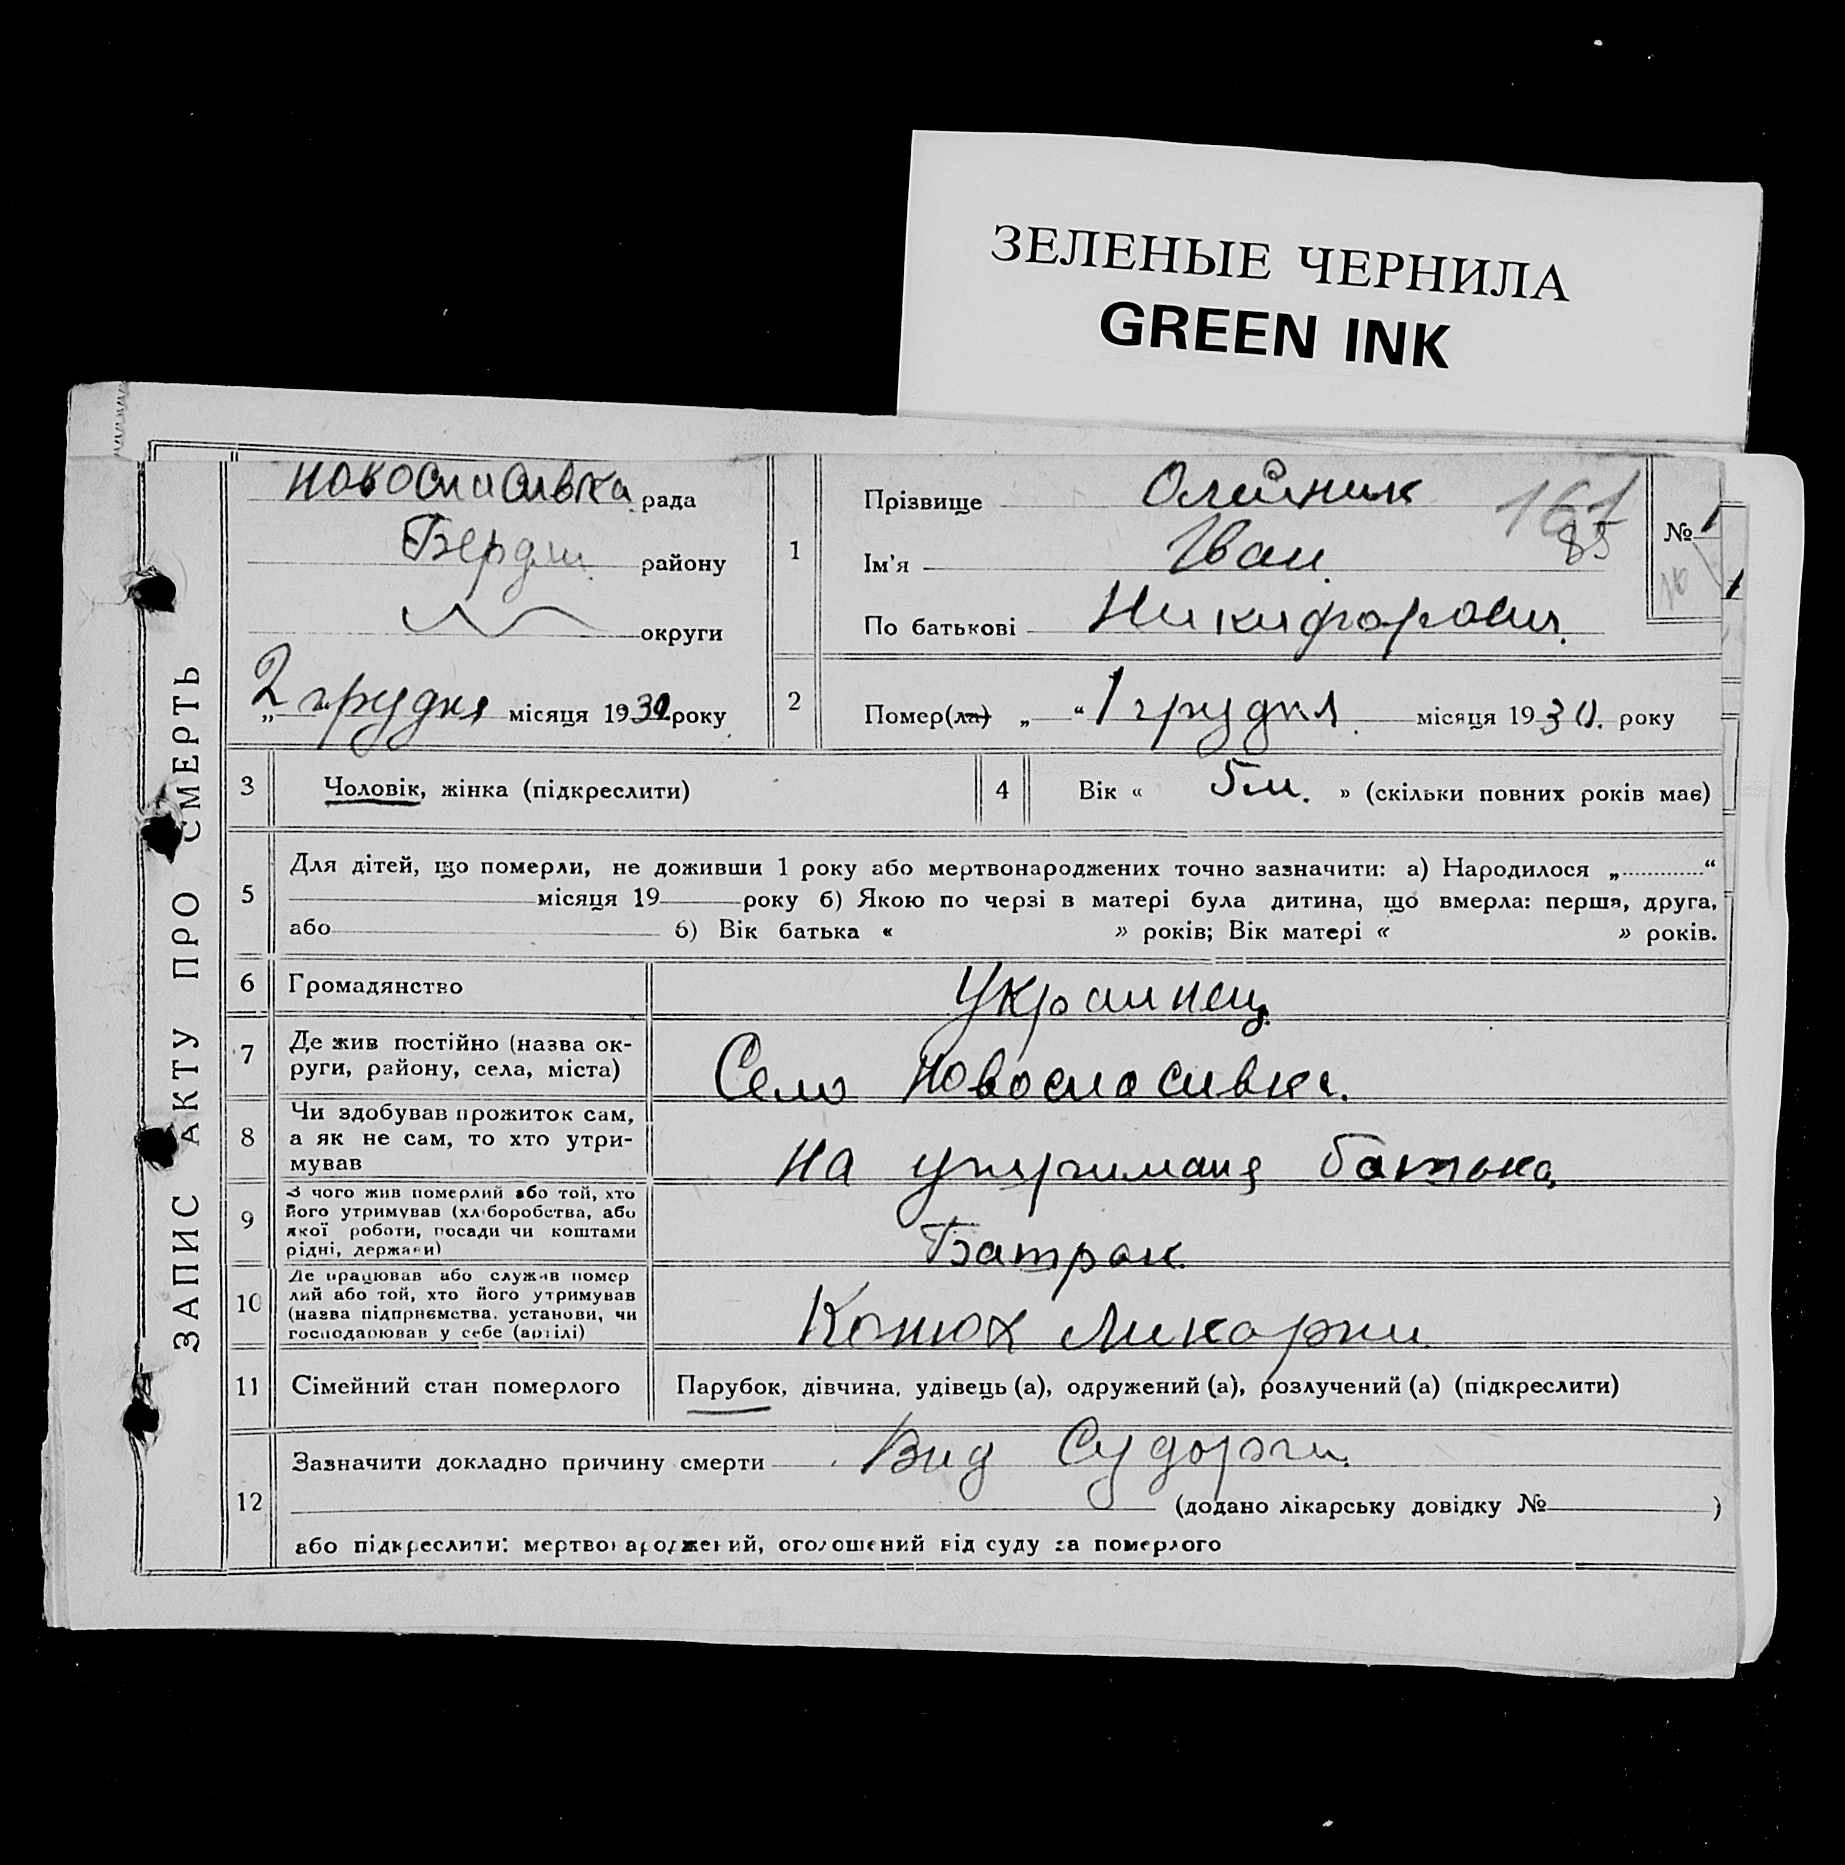 ЗЕЛЕНЫЕ ЧЕРНИЛА
GREEN INK
ЗАПИС АКТУ ПРО СМЕРТЬ
Новоспасивка рада
Бердян. району
округи
„2 грудня місяця 1930 року
1
Прізвище Олейник
Ім'я Іван.
По батькові Никифорович.
161
85
№ 1
2
Помер(ла) „ “ 1 грудня. місяця 1930. року
3 Чоловік, жінка (підкреслити)
4 Вік « 5 м. » (скільки повних років має)
5
Для дітей, що померли, не доживши 1 року або мертвонароджених точно зазначити: а) Народилося „ “
місяця 19 року б) Якою по черзі в матері була дитина, що вмерла: перша, друга,
або б) Вік батька « » років; Вік матері « » років.
6 Громадянство Украинец
7 Де жив постійно (назва ок-
руги, району, села, міста)
Село Новоспасивка.
8 Чи здобував прожиток сам,
а як не сам, то хто утри-
мував
На утримания батька
9 З чого жив померлий або той, хто
його утримував (хліборобства, або
якої роботи, посади чи коштами
рідні, держави)
Батрак
10 Де працював або служив помер
лий або той, хто його утримував
(назва підприємства, установи, чи
господарював у себе (артілі)
Конюх
11 Сімейний стан померлого
Парубок, дівчина, удівець (а), одружений (а), розлучений (а) (підкреслити)
12
Зазначити докладно причину смерти Вид Судорги.
(додано лікарську довідку № )
або підкреслити: мертвонароджений, оголошений від суду за померлого